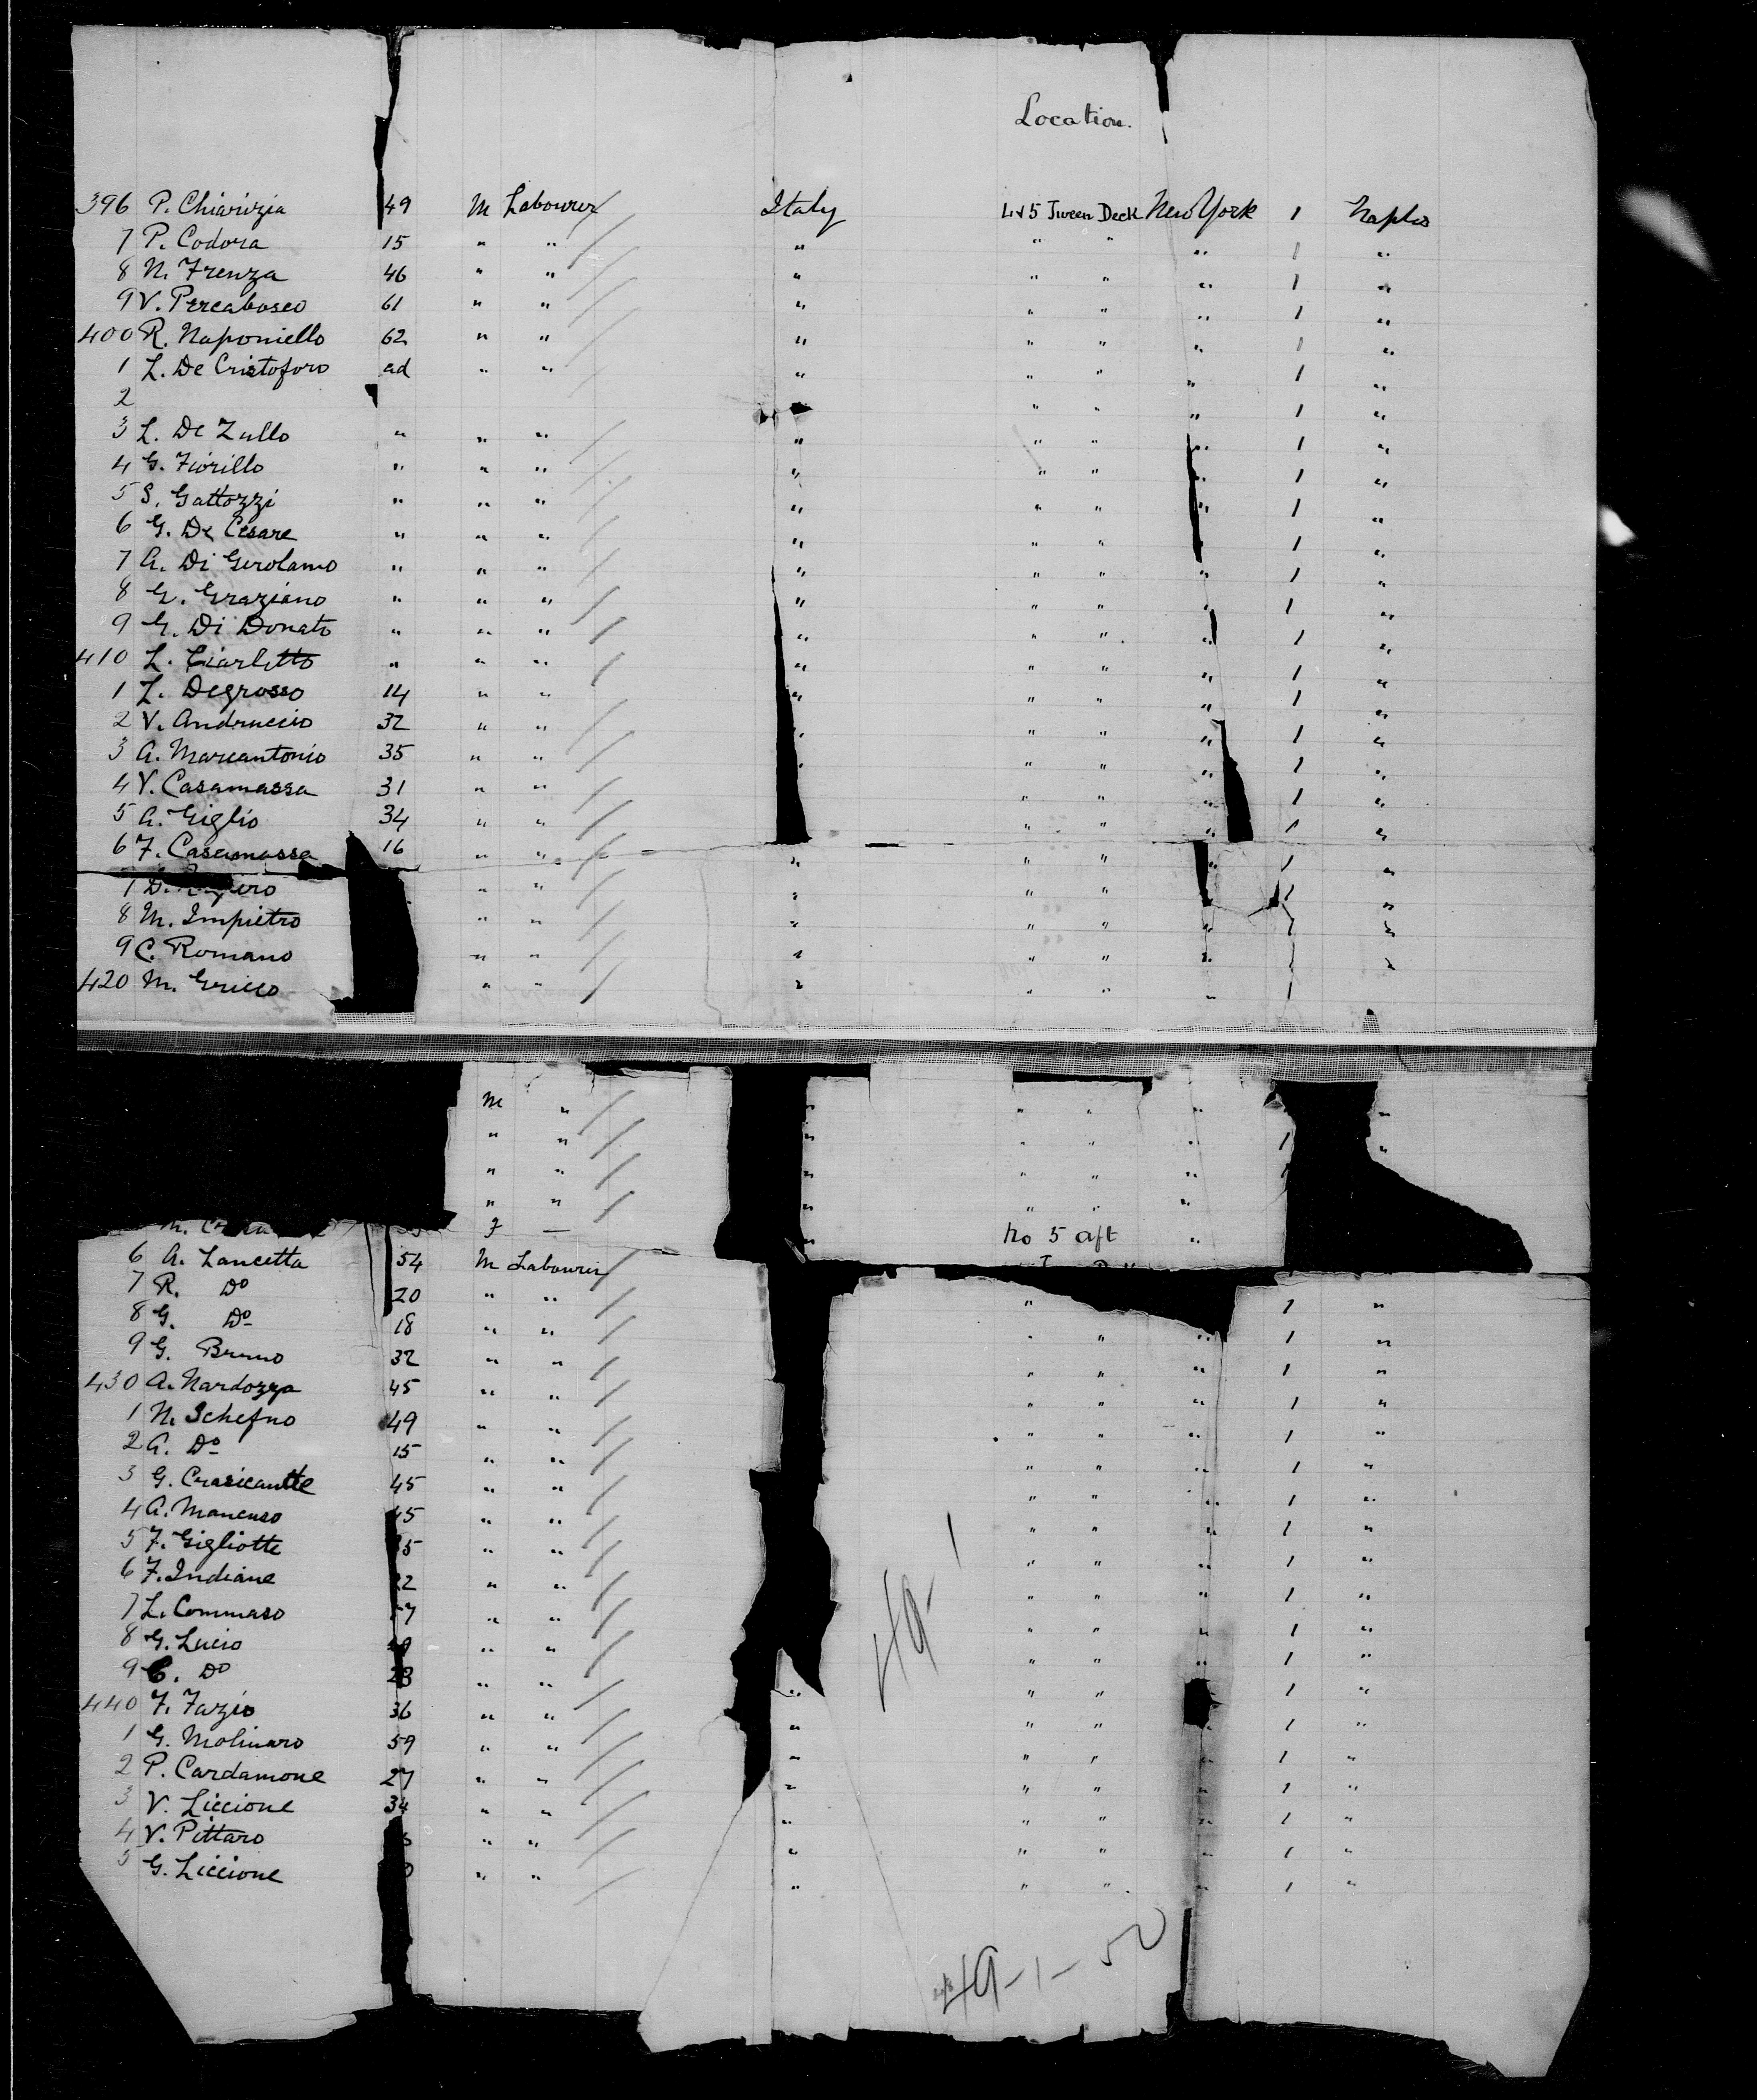 Location.
396 P. Chiarizia 49 M Labourer Italy 4 & 5 Tween Deck New York 1 Naples
7 P. Codora 15 " " " " " " 1 "
8 N. Frenza 46 " " " " " " 1 "
9 V. Percabosco 61 " " " " " " 1 "
400 R. Naponiello 62 " " " " " " 1 "
1 L. De Cristoforo ad " " " " " " 1 "
2 " " " 1 "
3 L. De Zullo " " " " " " " 1 "
4 G. Fiorillo " " " " " " " 1 "
5 S. Gattozzi " " " " " " " 1 "
6 G. De Cesare " " " " " " 1 "
7 A. Di Gerolamo " " " " " " " 1 "
8 G. Graziano " " " " " " " 1 "
9 G. Di Donato " " " " " " " 1 "
410 L. Ciarletto " " " " " " " 1 "
1 L. Degrosso 14 " " " " " " 1 "
2 V. Andruccio 32 " " " " " " 1 "
3 A. Marcantonio 35 " " " " " " 1 "
4 V. Casamassa 31 " " " " " 1 "
5 A. Giglio 34 " " " " " 1 "
6 F. Casamassa 16 " " " " " " 1 "
7 " " " " " 1 "
8 M. Impietro " " " " " " 1 "
9 C. Romano " " " " " " 1 "
420 M. Gricco " " " " " " 1
M " " " " " "
" " " " " " 1 "
" " " " " "
" " " " " "
M. F — " No 5 aft "
6 A. Lancetta 54 M Labourer
7 R. Do 20 " " " 1 "
8 G. Do 18 " " " " " 1 "
9 G. Bruno 32 " " " " " 1 "
430 A. Nardozza 45 " " " " " 1 "
1 N. Schefno 49 " " " " " 1 "
2 A. Do 15 " " " " " 1 "
3 G. Crasicante 45 " " " " " 1 "
4 A. Mancuso 45 " " " " " 1 "
5 F. Gigliotte " " " " " 1 "
6 F. Indiane " " " " " 1 "
7 L. Commaso " " " " " 1 "
8 G. Lucio " " " " " 1 "
9 C. Do 28 " " " " 1 "
440 F. Fazio 36 " " " " " " 1 "
1 G. Molinaro 59 " " " " " " 1 "
2 P. Cardamone 27 " " " " " " 1 "
3 V. Liccione 34 " " " " " " 1 "
4 V. Pittaro " " " " " " 1 "
5 G. Liccione " " " " " " 1 "
49 - 1
49 - 1 - 50